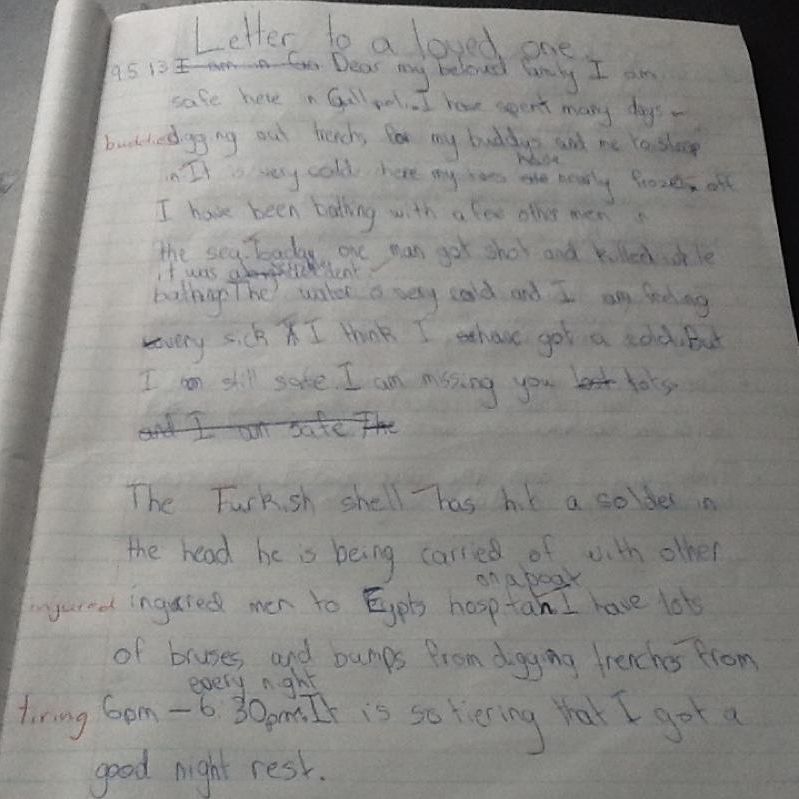 Letter to a loved one
9.5.13 I am in Dear my beloved family I am
safe here in Gallipoli. I have spent many days
buddie digging out trenchs for my buddys and me to sleep
in It is very cold here my toes are have nearly frozen off
I have been bathing with a few other men in
the sea. one man got shot and killed while
it was silent
bathing The water is very cold and I am feeling
very sick I think I have got a cold. But
I am still safe. I am missing you lots.
and I am safe The
The Turkish shell has hit a solder in
the head he is being carried of with other
on a boat
injured ingured men to Eypts hosptal I have lots
of bruses and bumps from digging trenches from
every night
tiring 6pm – 6.30pm. It is so tiering that I got a
good night rest.